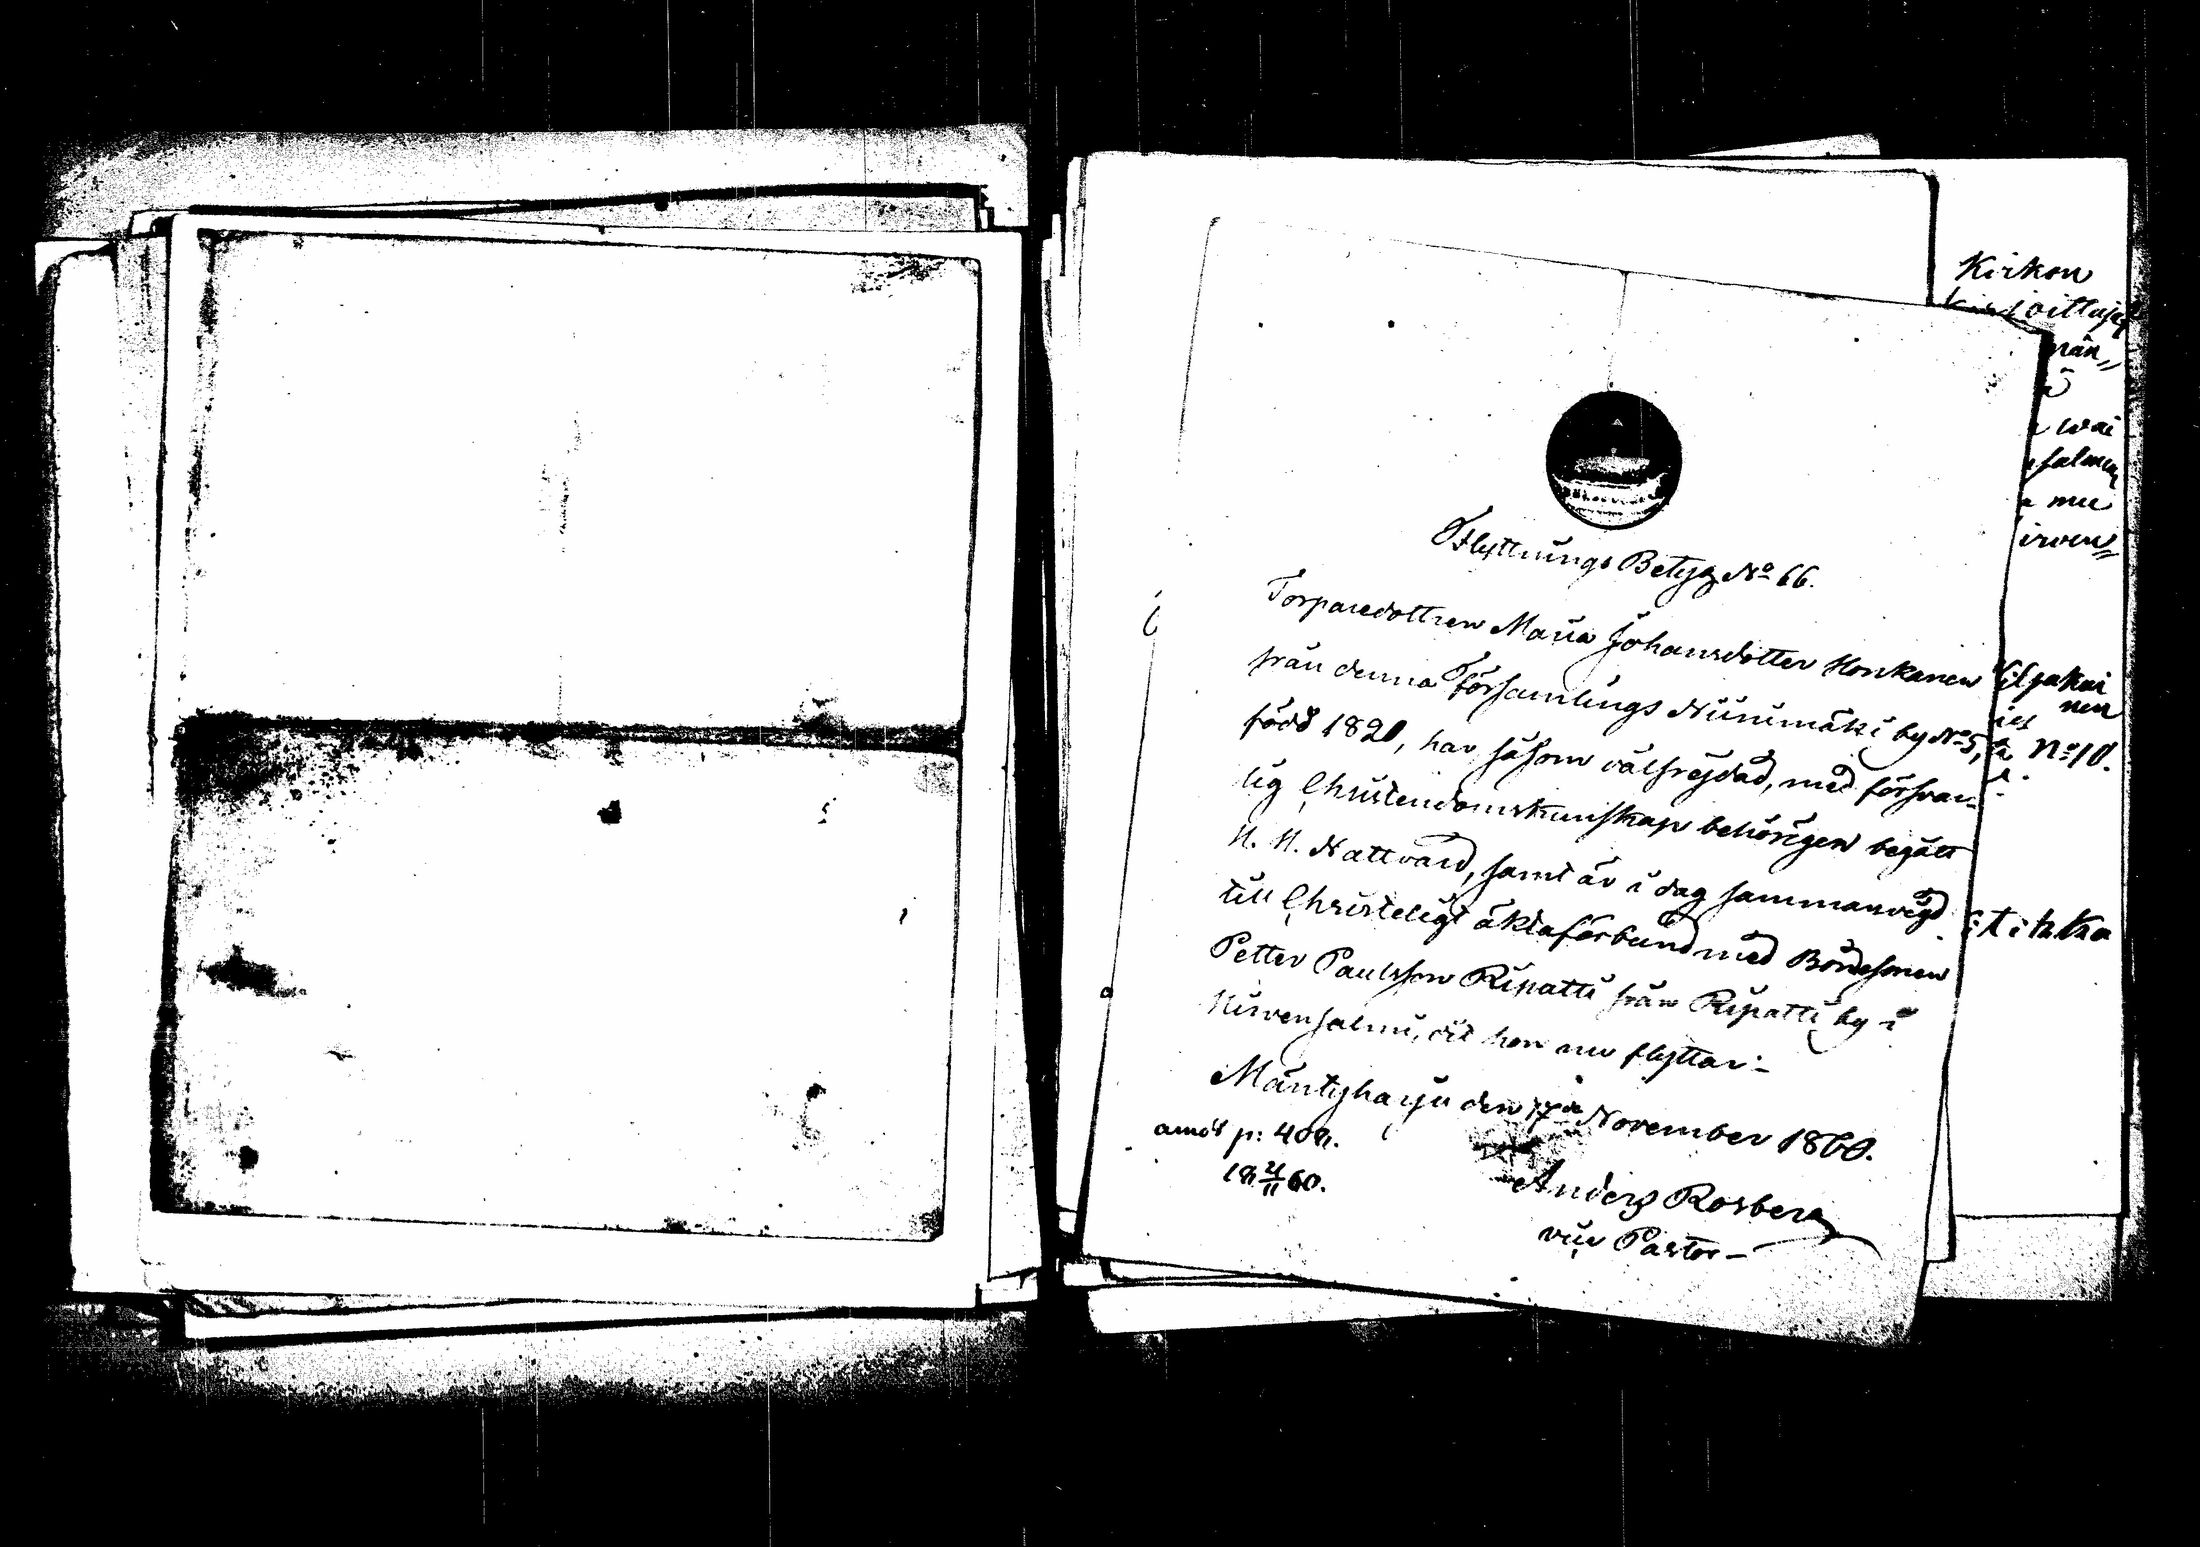 Flyttnings Betyg No 66.
Torparedottren Maria Johansdotter Honkanen
från denna Församlings Niinimäki by No 5,
född 1820, har såsom välfrejdad, med försvar-
lig Christendomskunskap behörigen begått
H. H. Nattvard, samt är i dag sammanvigd
till Christeligt äktaförbund med Bondesonen
Petter Paulsson Ripatti från Ripatti by i
Hirvensalmi, dit hon nu flyttar.-
Mäntyharju den 17de November 1860.
p: 408.
18 21/11 60.
Anders Rosberg
vice Pastor-
Kirkon
wai
mu
No 10.